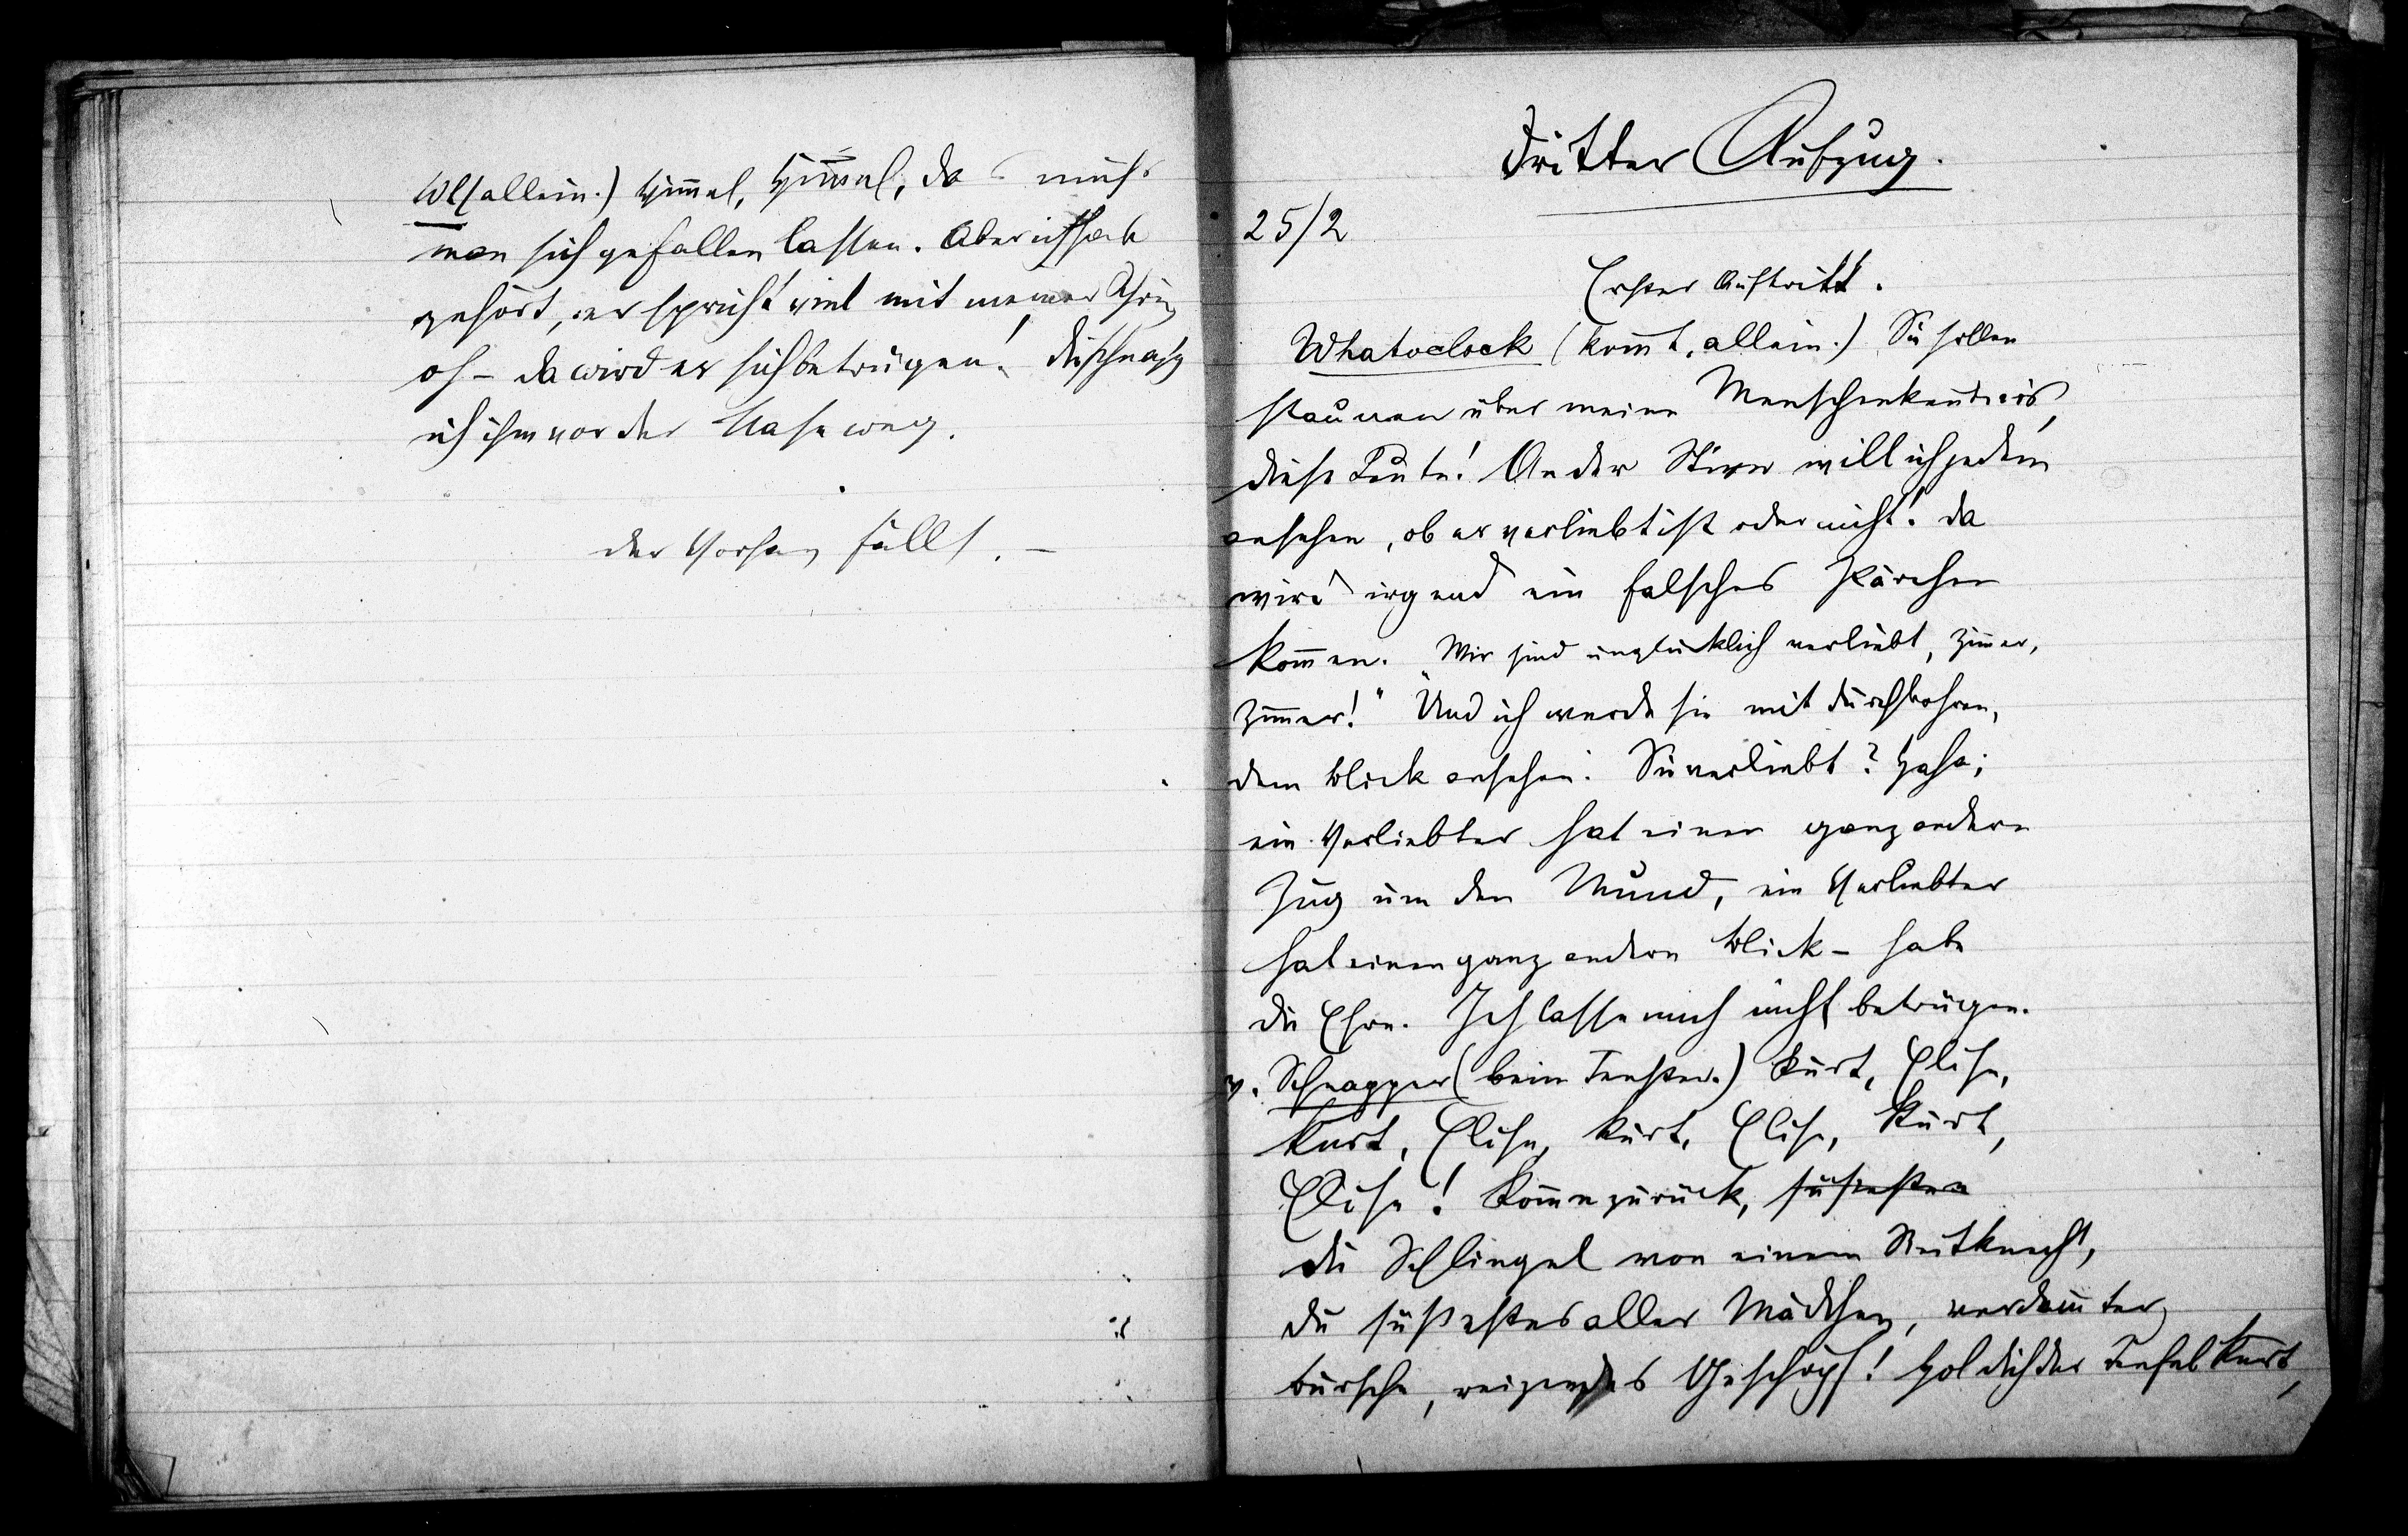 Wl (allein.) Himmel, Himmel, das muß
man sich gefallen lassen. Aber ich hab
gehört, er spricht viel mit meiner
oh – da wird er sich betrügen! Die schnapp
ich ihm vor der Nase weg.
Der Vorhang fällt. –
Dritter Aufzug.
25/2
Erster Auftritt.
Whatoclock (kommt, allein.) Sie sollen
staunen über meine Menschenkenntnis,
diese Leute! An der Stirn will ich jedem
ansehen, ob er verliebt ist oder nicht! Da
wird irgend ein falsches Pärchen
kommen. "Wir sind unglücklich verliebt, Zimmer,
Zimmer!" Und ich werde sie mit durchbohren,
dem Blick ansehen: Sie verliebt? Haha;
ein Verliebter hat einen ganz andern
Zug um den Mund, ein Verliebter
hat einen ganz andern Blick – habe
die Ehre. Ich lasse mich nicht betrügen.
v. Schnapper (beim Fenster.) Kurt, Elise,
Kurt, Elise, Kurt, Elise, Kurt,
Elise! Komme zurück, süßester
du Schlingel von einem Reitknecht,
du süßestes aller Mädchen, verdammter
Bursche, reizendes Geschöpf! Hol dich der Teufel Kurt,